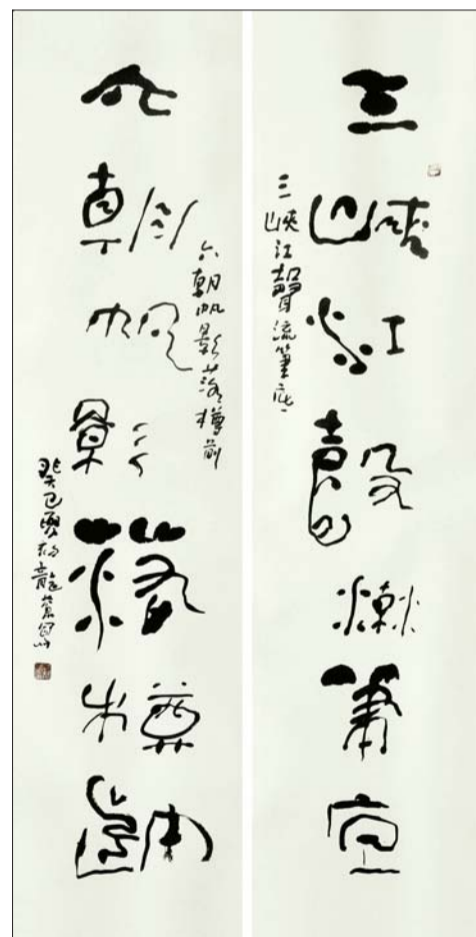 三峡江聲流筆底
三峡江聲流筆底
六朝帆影落樽前
六朝帆影落樽前
癸巳夏